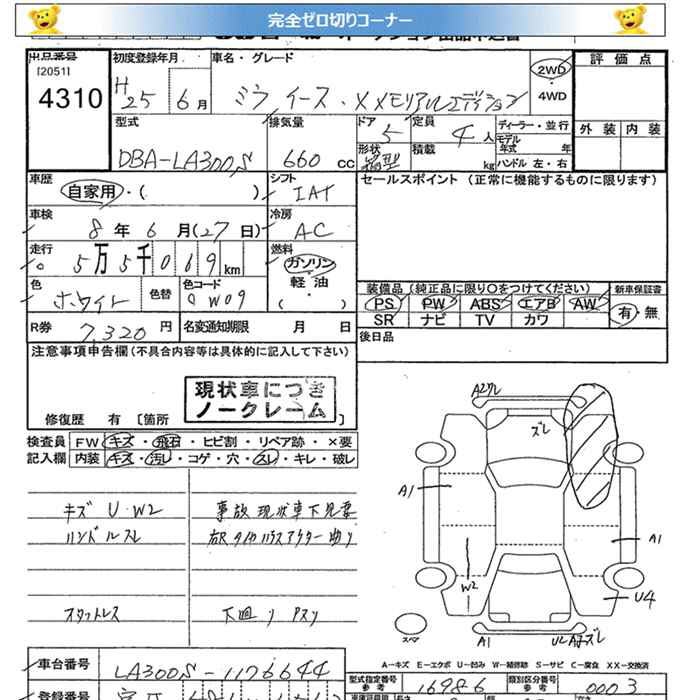 完全ゼロ切りコーナー
出品番号
[2051]
4310
初度登録年月
H 25 年 6 月
車名・グレード
ミラ イース・X メモリアルエディション
2WD
4WD
評価点
外装 内装
型式
DBA-LA300S
排気量
660 CC
ドア 5
形状
定員 4 人
積載 kg
ディーラー・並行
モデル年式 年
ハンドル 左・右
車歴
自家用・( )
シフト
IAT
セールスポイント (正常に機能するものに限ります)
車検
8 年 6 月 (27 日)
冷房
AC
走行
5 万 5 千 0 6 9 km
燃料
ガソリン
軽油
( )
色
ホワイト
色替
色コード
W09
装備品 (純正品に限り○をつけてください)
PS PW ABS エアB AW
SR ナビ TV カワ
新車保証書
有・無
R券 7,320 円
名変通知期限 月 日
後日品
注意事項申告欄 (不具合内容等は具体的に記入して下さい)
現状車につき
ノークレーム
修復歴 有 [箇所 ]
検査員 FW キズ・飛石・ヒビ割・リペア跡・×要
記入欄 内装 キズ・汚レ・コゲ・穴・スレ・キレ・破レ
キズ U・W2
ハンドルスレ
スタットレス
事故 現状車下見要
下廻り サスリ
A2リレ
ズレ
A1
A1
W2
U4
スペア
A1
A-キズ E-エクボ U-凹み W-補修跡 S-サビ C-腐食 XX-交換済
車台番号
LA300S-1176644
型式指定番号
参考
16986
類別区分番号
参考
0003
登録番号